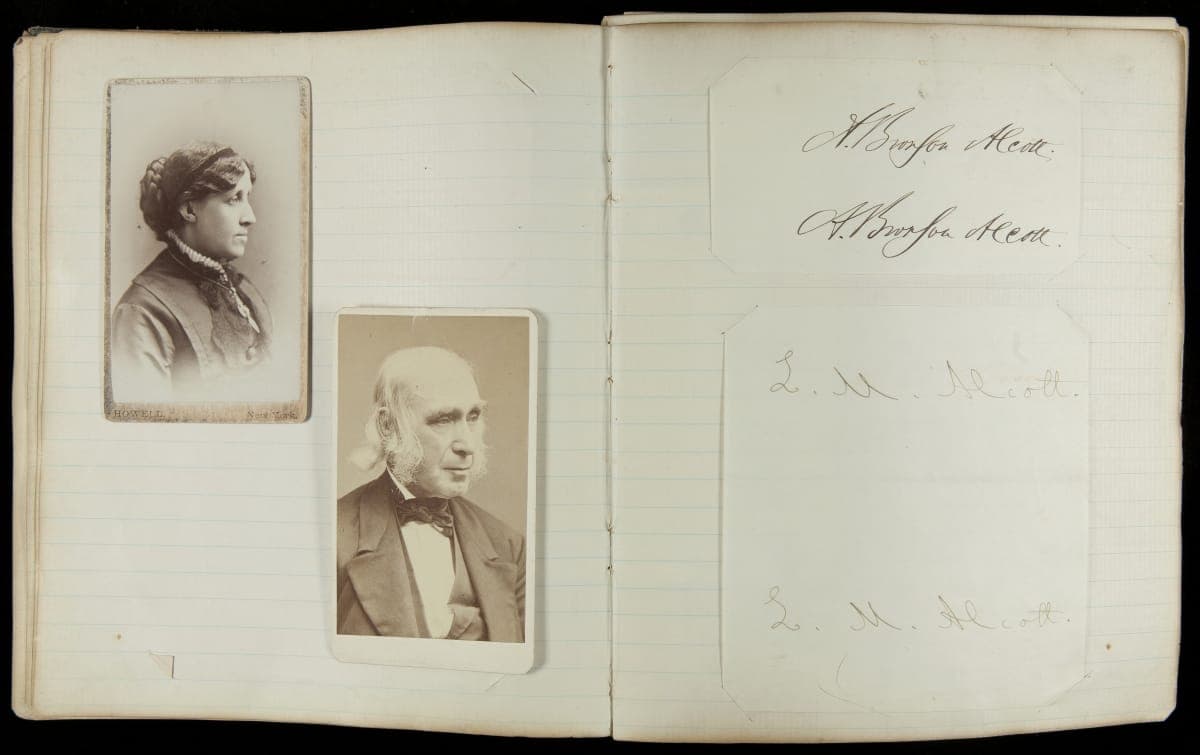 HOWELL. New York.
A. Bronson Alcott.
A. Bronson Alcott.
L. M. Alcott.
L. M. Alcott.